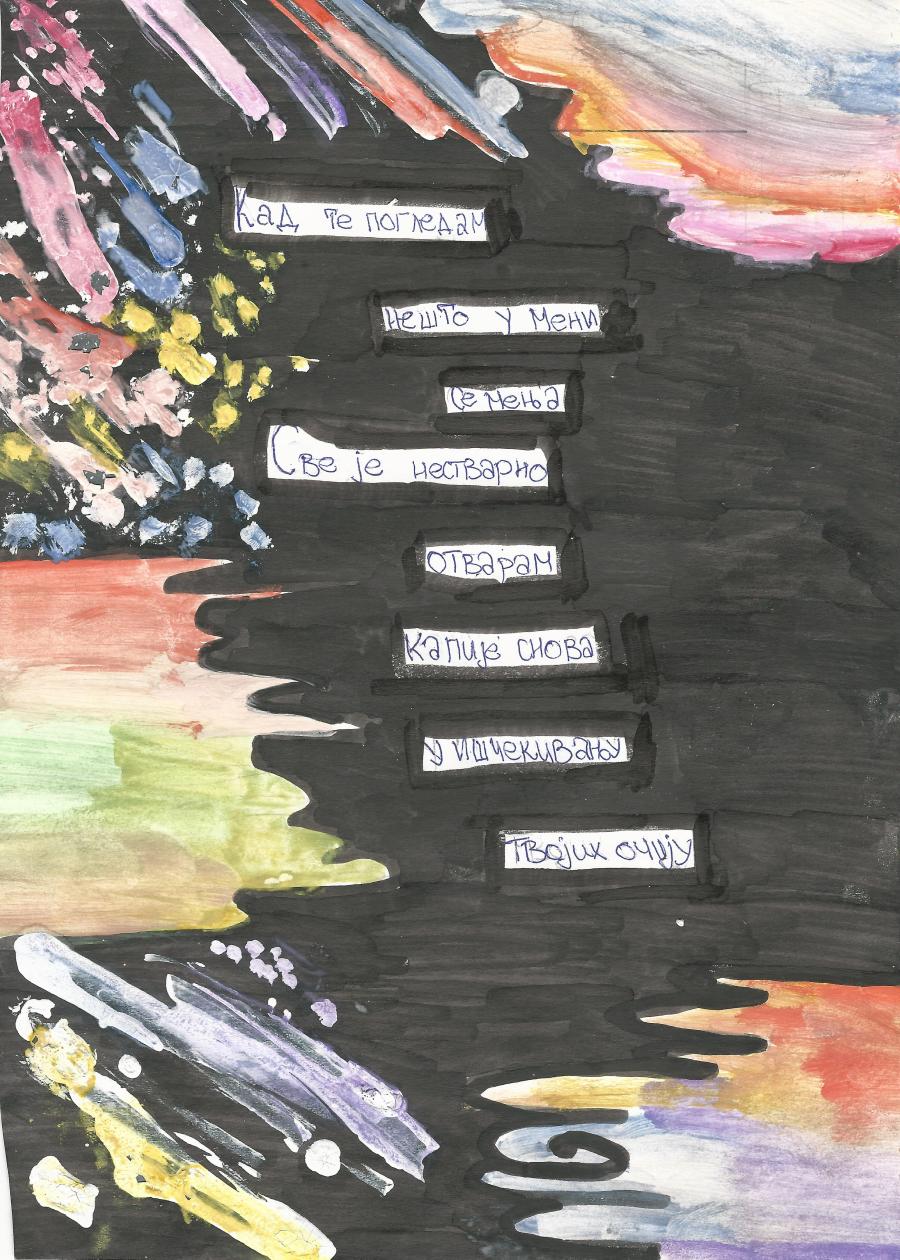 Кад те погледам
нешто у мени
се мења
Све је нестварно
отварам
капије снова
у ишчекивању
твојих очију